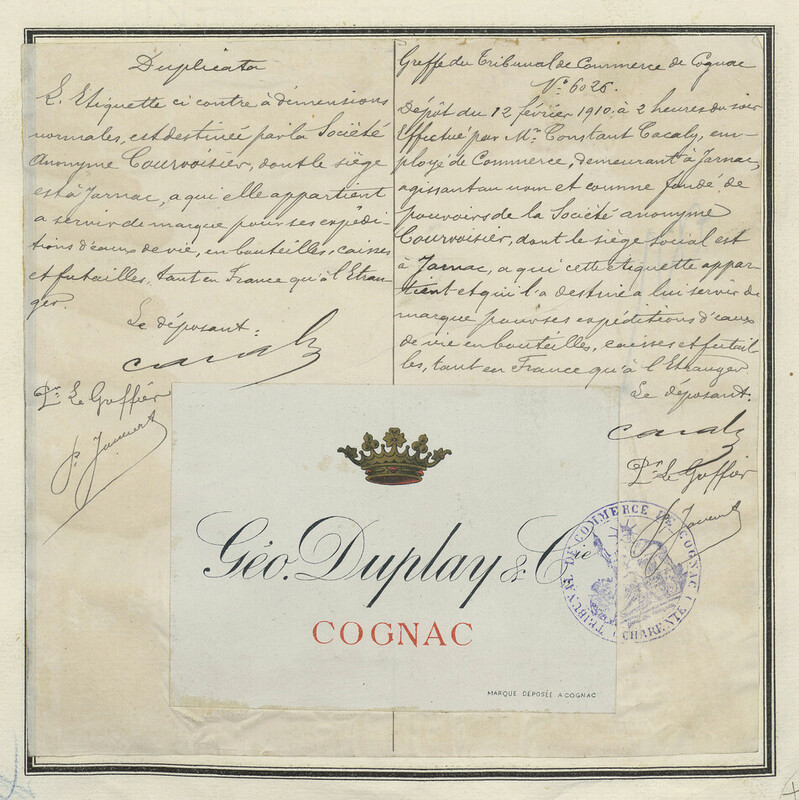 Duplicata
L'Etiquette ci contre à dimensions
normales, est destinée par la Société
Anonyme Courvoisier, dont le siège
est à Jarnac, a qui elle appartient
a servir de marque pour ses expédi-
tions d'eaux de vie, en bouteilles, caisses
et futailles, tant en France qu'à l'Etran-
ger.
Le déposant:
Pr. Le Greffier
Greffe du Tribunal de Commerce de Cognac
No. 6026.
Dépôt du 12 février 1910 à 2 heures du soir
Effectué par Mr. Constant Cacaly, em-
ployé de Commerce, demeurant à Jarnac,
agissant au nom et comme fondé de
pouvoirs de la Société anonyme
Courvoisier, dont le siège social est
à Jarnac, a qui cette étiquette appar-
tient et qui l'a destiné a lui servir de
marque pour ses expéditions d'eaux
de vie en bouteilles, caisses et futail-
les, tant en France qu'à l'Etranger
Le déposant:
Pr. Le Greffier
Géo. Duplay & Cie
COGNAC
MARQUE DÉPOSÉE A COGNAC
TRIBUNAL DE COMMERCE DE COGNAC
(CHARENTE)